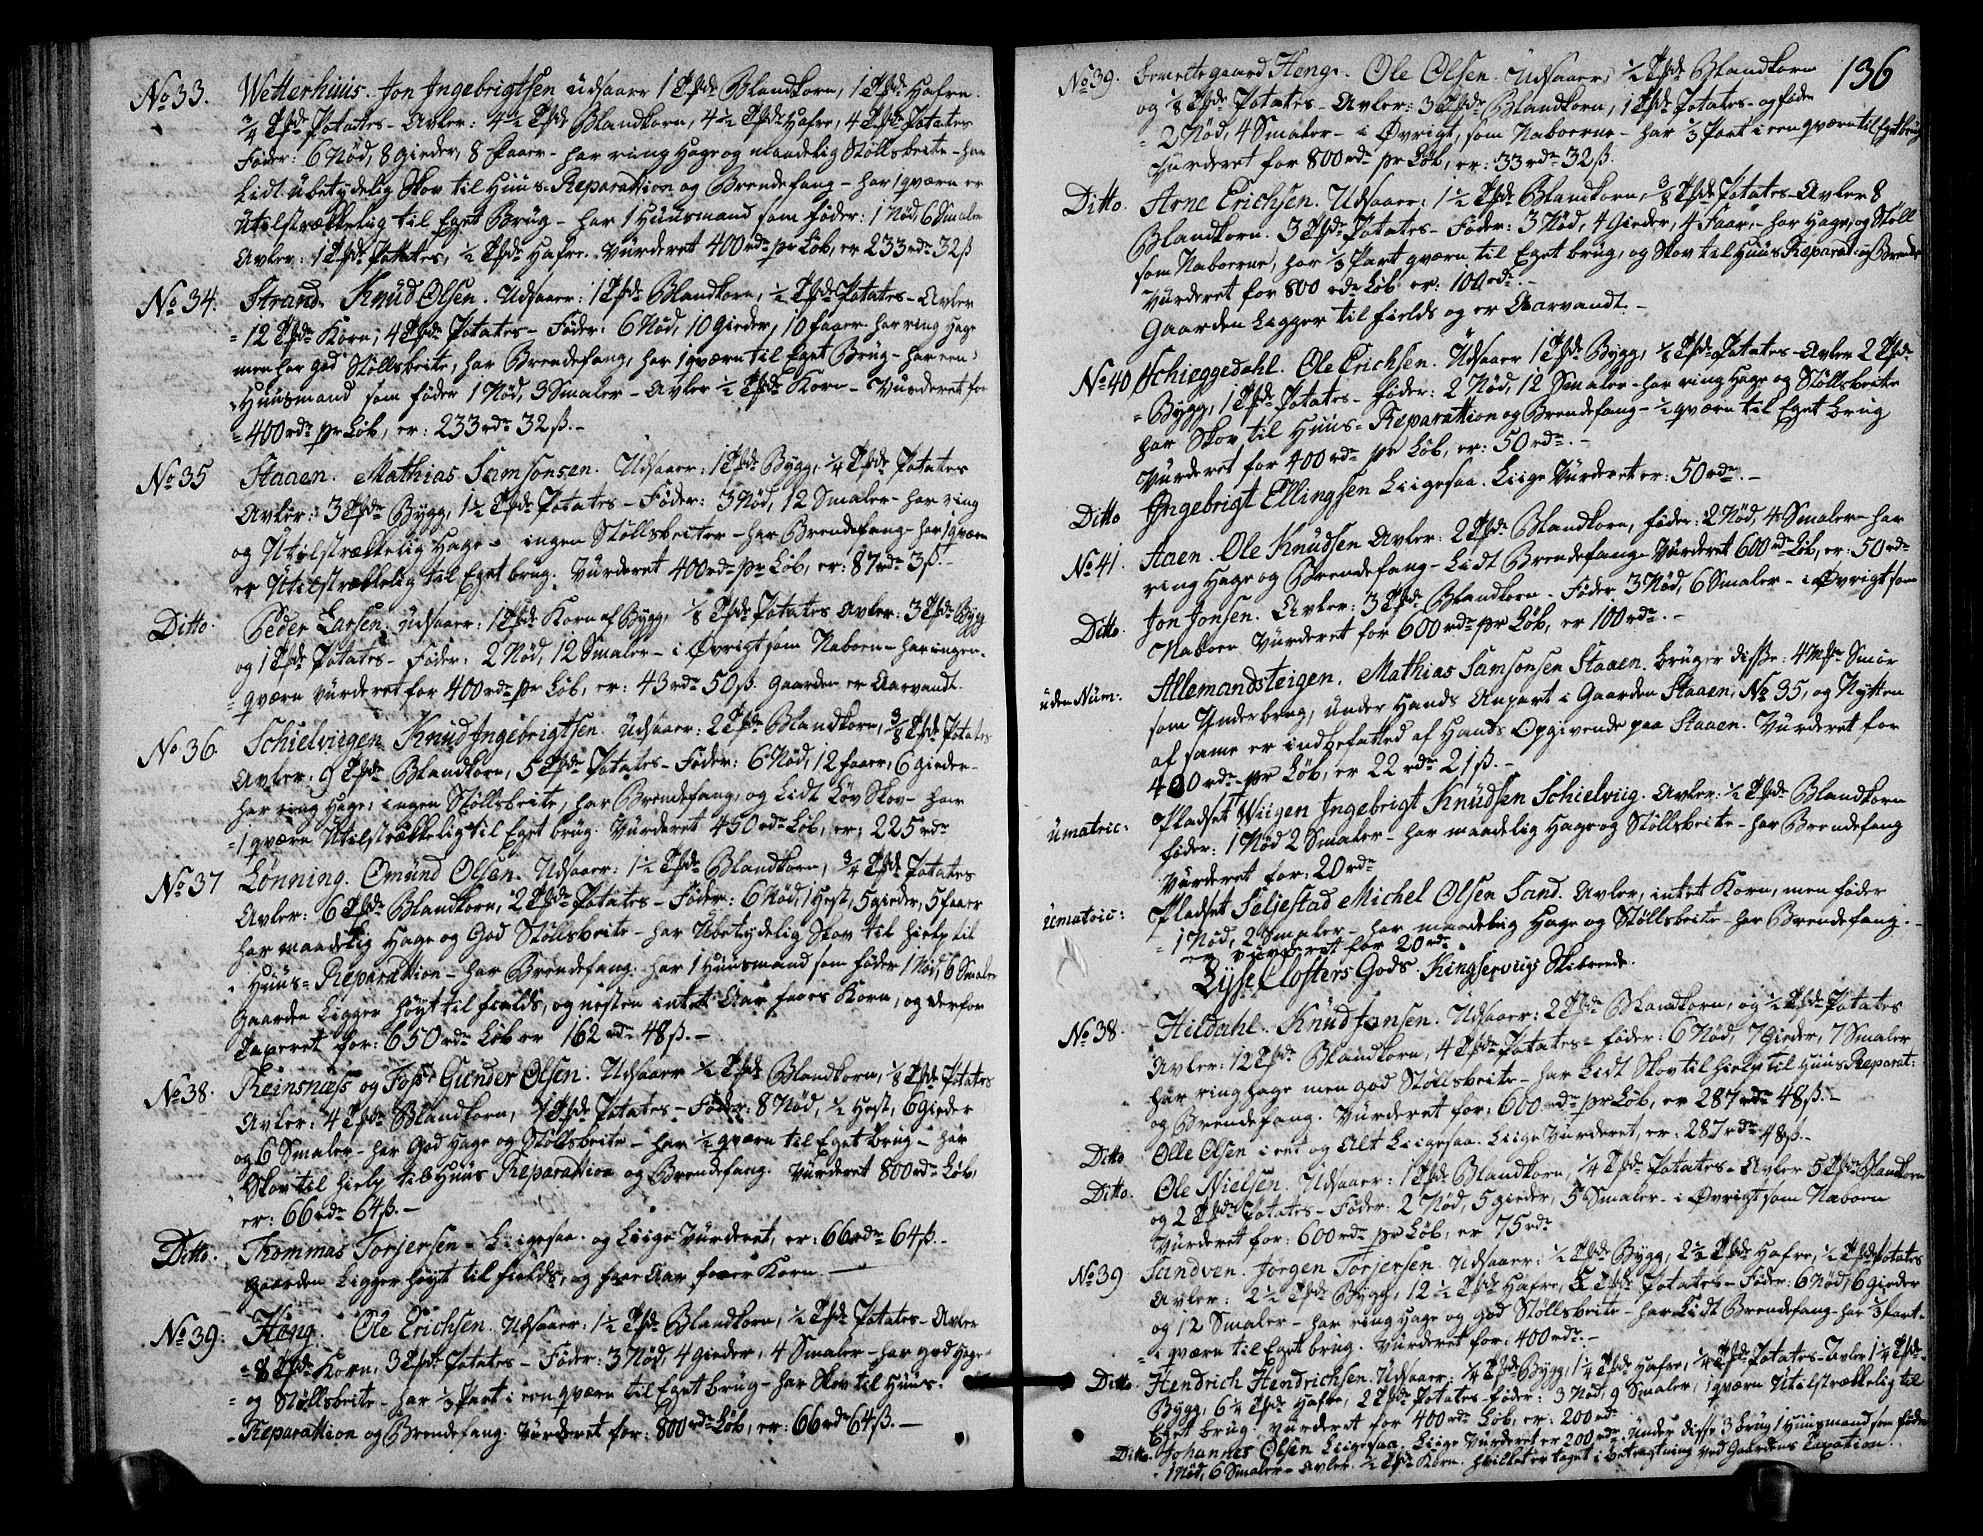 No 33. Wetterhuus. Jon Ingebrigtsen udsaaer 1 Tde Blandkorn, 1 Tde Hafre.
3/4 Tde Potates - Avler: 4 1/2 Tde Blandkorn, 4 1/2 Tde Hafre, 4 Tde Potates
Føder: 6 Nød, 8 Gieder, 8 Faaer - har ring Hage og maadelig Støllsbeite - har
Lidt ubetydelig Skov til Huus-Reparation og Brendefang - har 1 qværn er
Utilstrækkelig til Eget Brug - har 1 Huusmand som føder: 1 Nød, 6 Smaler
Avler: 1 Tde Potates, 1/2 Tde Hafre. Vurderet 400 rdr pr Løb, er 233 rdr 32 ß
No 34. Strand. Knud Olsen. Udsaaer: 1 Tde Blandkorn, 1/2 Tde Potates - Avler
12 Tde Korn, 4 Tde Potates - Føder: 6 Nød, 10 Gieder, 10 faaer. har ring Hage
men har god Støllsbeite, har Brendefang, har 1 qværn til Eget Brug - har een
Huusmand som føder 1 Nød, 3 Smaler - Avler 1/2 Tde Korn - Vurderet for
400 rdr pr Løb, er: 233 rdr 32 ß. -
No 35 Staaen. Mathias Samsonsen. Udsaaer: 1 Tde Bygg, 1/4 Tde Potates
Avler: 3 Tde Bygg, 1 1/2 Tde Potates - Føder: 3 Nød, 12 Smaler - har ring
og Utilstrækkelig Hage - ingen Støllsbeiter - har Brendefang - har 1 qværn
er Utilstrekkelig til Eget brug. Vurderet 400 rdr pr Løb, er: 87 rdr 3 ß. -
Ditto. Peder Larsen. Udsaaer: 1 Tde Korn af Bygg, 1/8 Tde Potates Avler: 3 Tde Bygg
og 1 Tde Potates - Føder: 2 Nød, 12 Smaler - i Øvrigt som Naboen - har ingen
qværn vurderet for 400 rdr pr Løb, er: 43 rdr 50 ß. gaarden er Aarvandt.
No 36. Schielviigen Knud Ingebrigtsen. Udsaaer: 2 Tde Blandkorn, 3/8 Tde Potates
Avler: 9 Tde Blandkorn, 5 Tde Potates - Føder: 6 Nød, 12 faaer, 6 gieder -
har ring Hage, ingen Støllsbeite, har Brendefang, og Lidt Løv Skov - har
1 qværn Utilstrækkelig til Eget brug. Vurderet 450 rdr Løb, er: 225 rdr
No 37 Lønning. Omund Olsen. Udsaaer: 1 1/2 Tde Blandkorn, 3/4 Tde Potates
Avler: 6 Tde Blandkorn, 2 Tde Potates - Føder: 6 Nød, 1 Hest, 5 gieder, 5 faaer
har maadelig Hage og God Støllsbeite - har Ubetydelig Skov til hielp til
Huus-Reparation - har Brendefang. har 1 Huusmand som føder 1 Nød, 6 Smaler
Gaarden Ligger høyt til fields, og nesten intet Aar faaes Korn, og derfor
Taxeret for: 650 rdr Løb er 162 rdr 48 ß. -
No 38. Reinsnæss og Foss Gunder Olsen. Udsaaer 1/2 Tde Blandkorn, 1/8 Tde Potates
Avler: 4 Tde Blandkorn, 1 Tde Potates - Føder: 8 Nød, 1/2 Hest, 6 gieder
og 6 Smaler - har God Hage og Støllsbeite - har 1/2 qværn til Eget Brug - har
Skov til hielp til Huus Reparation og Brendefang. Vurderet 800 rdr Løb
er: 66 rdr 64 ß. -
Ditto. Thommas Torjersen - Liigesaa. og Liige Vurderet, er: 66 rdr 64 ß. -
Gaarden Ligger høyt til fields, og faae Aar faaer Korn. -
No 39. Hæng. Ole Erichsen. Udsaaer: 1 1/2 Tde Blandkorn, 1/2 Tde Potates - Avler
8 Tde Korn, 3 Tde Potates - Føder: 3 Nød, 4 gieder, 4 Smaler - har god Hage
og Støllsbeite - har 1/3 Part i een qværn til Eget brug - har Skov til Huus-
Reparation og Brendefang. Vurderet for: 800 rdr Løb, er: 66 rdr 64 ß. -
136
No 39. bemelte gaard Heng. Ole Olsen. Udsaaer 1/2 Tde Blandkorn
og 1/8 Tde Potates - Avler: 3 Tde Blandkorn, 1 Tde Potates - og føder
2 Nød, 4 Smaler - i Øvrigt, som Naboerne - har 1/3 Part i een qværn til Eget brug
Vurderet for 800 rdr pr Løb, er: 33 rdr 32 ß.
Ditto. Arne Erichsen. Udsaaer: 1 1/2 Tde Blandkorn, 3/8 Tde Potates - Avler 8
Blandkorn. 3 Tde Potates - Føder: 3 Nød, 4 Gieder, 4 Faar, - har Hage, og Støll
som Naboerne, har 1/3 Part qværn til Eget brug, og Skov til Huus Reparat: og Brende
Vurderet for 800 rdr Løb er: 100 rdr. -
Gaarden Ligger til fields og er Aarvandt. -
No 40 Schieggedahl. Ole Erichsen. Udsaaer 1 Tde Bygg, 1/8 Tde Potates - Avler 2 Tde
Bygg, 1 Tde Potates - føder: 2 Nød, 12 Smaler - har ring Hage og Støllsbeite
har Skov til Huus-Reparation og Brendefang - 1/2 qværn til Eget brug
Vurderet for 400 rdr pr Løb, er: 50 rdr. -
Ditto Ingebrigt Ellingsen Liigesaa. Liige Vurderet er: 50 rdr. -
No 41. Aaen. Ole Knudsen Avler: 2 Tde Blandkorn, føder: 2 Nød, 4 Smaler - har
ring Hage og Brendefang - Lidt Brendefang - Vurderet 600 rdr Løb, er: 50 rdr
Ditto. Jon Jonsen. Avler: 3 Tde Blandkorn - Føder 3 Nød, 6 Smaler - i Øvrigt som
Naboen Vurderet for 600 rdr pr Løb, er 100 rdr. -
uden Num: Allemandsteigen. Mathias Samsonsen Staaen. bruger disse: 4 Mrk Smør
som Underbrug, under Hands Anpart i Gaarden Staaen, No 35, og Nytten
af same er indbefatted af Hands Opgivende paa Staaen. Vurderet for
400 rdr pr Løb, er 22 rdr 21 ß. -
umatric: Pladset Wiigen Ingebrigt Knudsen Schielviig. Avler: 1/2 Tde Blandkorn
føder: 1 Nød 2 Smaler - har maadelig Hage og Støllsbeite - har Brendefang
Vurderet for: 20 rdr
umatric: Pladset Seljestad Michel Olsen Sand. Avler, intet Korn, men føder
1 Nød, 2 Smaler - har maadelig Hage og Støllsbeite - har Brendefang.
er vurderet for 20 rdr.
Lysse Closters Gods. Kingserviigs Skibrede.
No 38. Hildahl. Knud Jansen. Udsaaer: 2 Tde Blandkorn, og 1/2 Tde Potates
Avler: 12 Tde Blandkorn, 4 Tde Potates - føder: 6 Nød, 7 Gieder, 7 Smaler
har ring hage men god Støllsbeite - har Lidt Skov til hielp til Huus Reparat:
og Brendefang. Vurderet for: 600 rdr pr Løb, er 287 rdr 48 ß. -
Ditto Olle Olsen i eet og Alt Liigesaa. Liige Vurderet, er: 287 rdr 48 ß. -
Ditto. Ole Nielsen. Udsaaer: 1 Tde Blandkorn, 1/4 Tde Potates - Avler 5 Tde Blandkorn
og 2 Tde Potates - Føder: 2 Nød, 5 gieder, 5 Smaler - i Øvrigt som Naboen
Vurderet for: 600 rdr pr Løb, er 75 rdr
No 39 Sandven. Jørgen Torjersen. Udsaaer: 1/2 Tde Bygg, 2 1/2 Tde Hafre, 1/2 Tde Potates
Avler: 2 1/2 Tde Bygg, 12 1/2 Tde Hafre, 5 Tde Potates - Føder: 6 Nød, 6 gieder
og 12 Smaler - har ring Hage og god Støllsbeite - har Lidt Brendefang - har 1/3 part
i qværn til Eget brug. Vurderet for: 400 rdr. -
Ditto. Hendrich Hendrichsen. Udsaaer: 1/4 Tde Bygg, 1 1/4 Tde Hafre, 1/4 Tde Potates - Avler 1 1/4 Tde
Bygg, 6 1/4 Tde Hafre, 2 Tde Potates føder: 3 Nød, 9 Smaler, 1 qværn Utilstrækkelig til
Eget brug. vurderet for 400 rdr Løb, er: 200 rdr.
Ditto. Johannes Olsen Liigesaa. Liige Vurderet er 200 rdr. Under disse 3 brug 1 Huusmand som føder
1 Nød, 6 Smaler - Avler 1/2 Tde Korn. hvilket er taget i betragtning ved Gaardens Taxation.